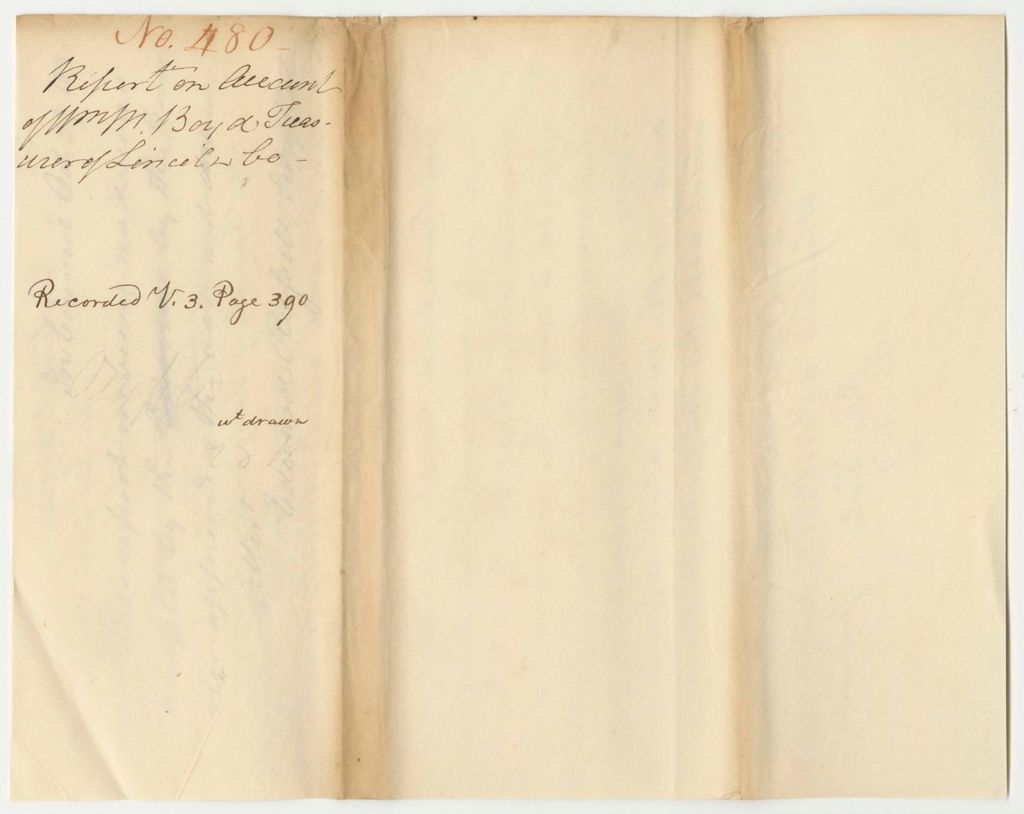 No. 480
Report on Account
of Wm M. Boyd Treas-
urer of Lincoln Co -
Recorded V. 3. Page 390
wt drawn